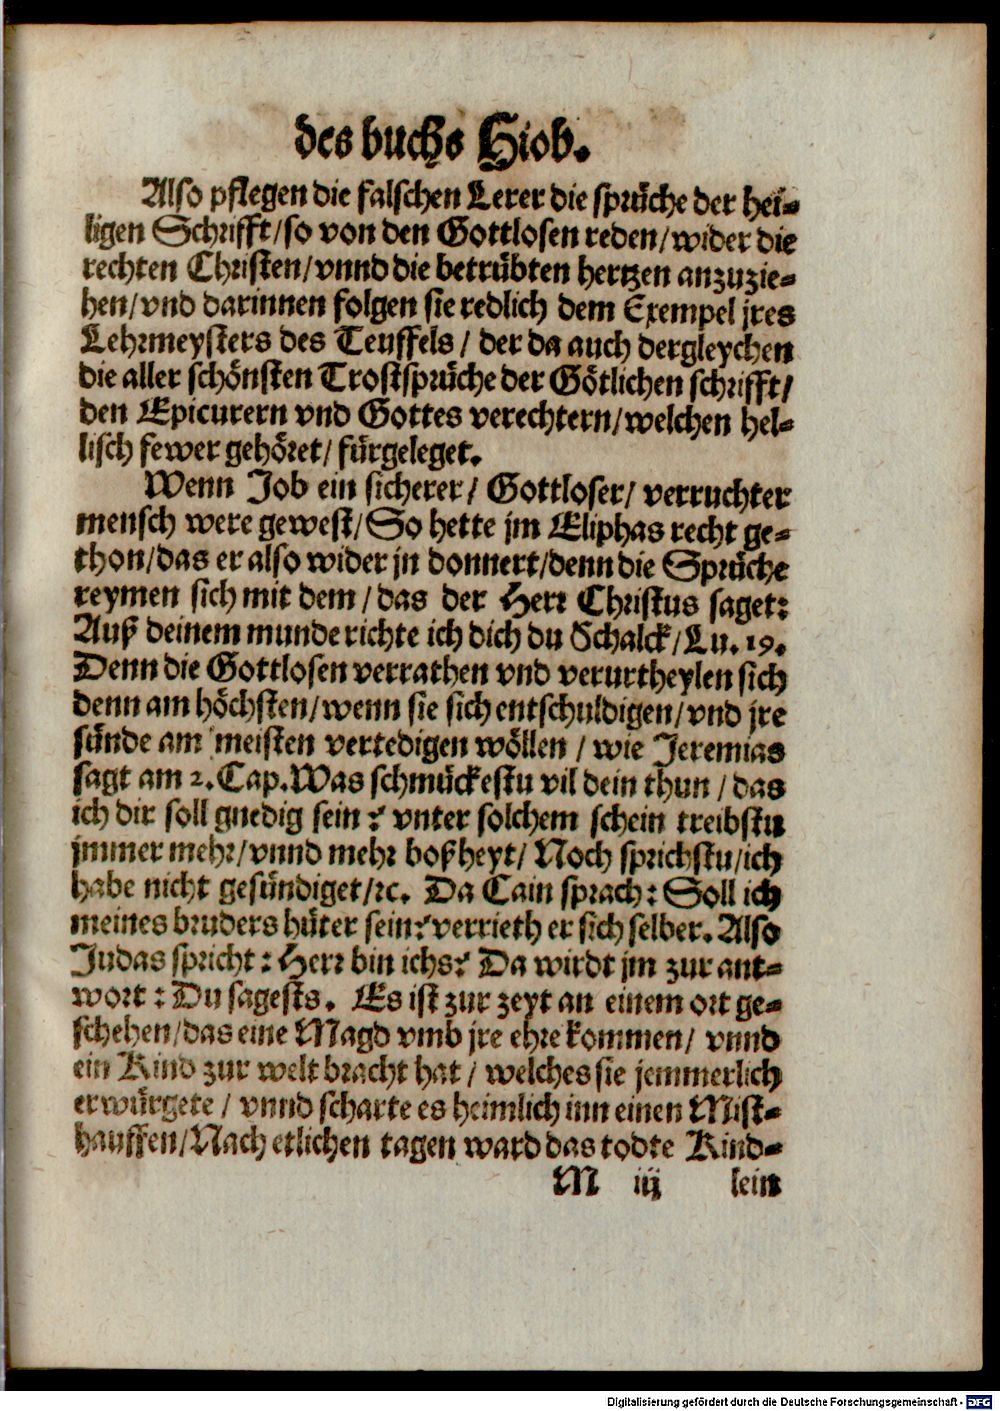 des buchs Hiob.
Also pflegen die falschen Lerer die sprüche der hei-
ligen Schrifft/so von den Gottlosen reden/wider die
rechten Christen/vnnd die betrübten hertzen anzuzie-
hen/vnd darinnen folgen sie redlich dem Exempel jres
Lehrmeysters des Teuffels/ der da auch dergleychen
die aller schönsten Trostsprüche der Götlichen schrifft/
den Epicurern vnd Gottes verechtern/welchen hel-
lisch fewer gehöret/ fürgeleget.
Wenn Job ein sicherer/ Gottloser/ verruchter
mensch were gewest/So hette jm Eliphas recht ge-
thon/das er also wider jn donnert/denn die Sprüche
reymen sich mit dem/das der Herr Christus saget:
Auß deinem munde richte ich dich du Schalck/Lu. 19.
Denn die Gottlosen verrathen vnd verurtheylen sich
denn am höchsten/wenn sie sich entschuldigen/vnd jre
sünde am meisten vertedigen wöllen / wie Jeremias
sagt am 2. Cap. Was schmückestu vil dein thun / das
ich dir soll gnedig sein? vnter solchem schein treibstu
jmmer mehr/vnnd mehr boßheyt/ Noch sprichstu/ich
habe nicht gesündiget/ꝛc. Da Cain sprach: Soll ich
meines bruders hüter sein? verrieth er sich selber. Also
Judas spricht: Herr bin ichs? Da wirdt jm zur ant-
wort: Du sagests. Es ist zur zeyt an einem ort ge-
schehen/das eine Magd vmb jre ehre kommen/ vnnd
ein Kind zur welt bracht hat / welches sie jemmerlich
erwürgete / vnnd scharte es heimlich inn einen Mist-
hauffen/Nach etlichen tagen ward das todte Kind-
M iij lein
Digitalisierung gefördert durch die Deutsche Forschungsgemeinschaft - DFG